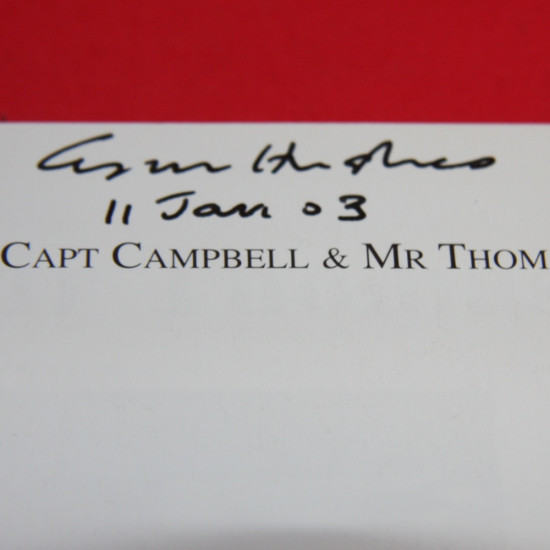 Hughes
11 Jan 03
CAPT CAMPBELL & MR THOM